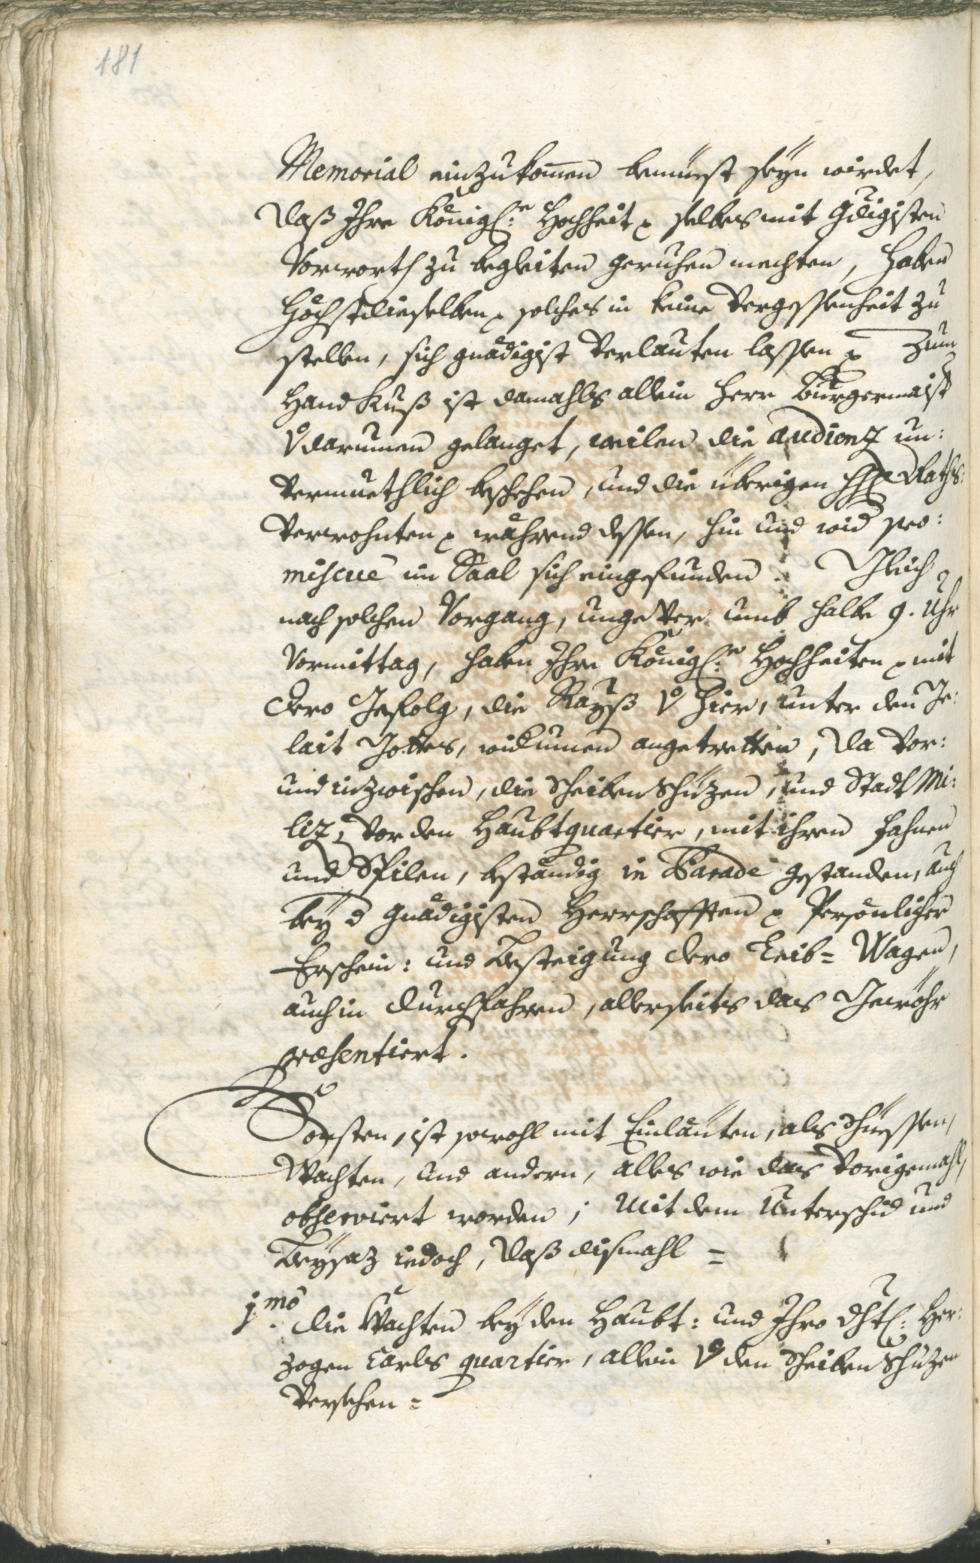 181
Memorial einzukom̄en bemüest seyn wirdet,
daß Ihre Königl: Hochheit selbes mit Gdigisten
Vorworth zu begleiten geruhen mechten, haben
Höchstdieselben, solches in keine Vergessenheit zu
stellen, sich gnädigist verlauten lassen Zum
Hand Kuß ist damahls allein Herr Burgermaist
darumen gelanget, weilen die audienz un:
vermuethlich beschehen, und die übrigen Raths
Verwohnten während dessen, hin und wid pro:
miscue im Saal sich eingefunden.
nach solchen Vorgang, ungever umb halbe 9. Uhr
Vormittag, haben Ihre Königl: Hochheiten mit
dero Gefolg, die Rayß v hier, unter den Ge:
lait Gottes, widumen angetretten, da vor:
und inzwischen, die Scheiben Schüzen, und Stadt Mi:
liz, vor den Haubtquartier, mit ihren Fahnen
und Spilen, beständig in Parade gestanden, auch
bey d Gnädigisten Herrschafften Persönlicher
Erschein: und Besteigung dero Leib= Wagen,
auch in durchfahren, allerseits das Gewöhr
præsentiert.
Sonsten, ist sowohl mit Einläuten, als Schiessen,
Wachten, und andern, alles wie das vorigemahl,
observiert worden; Mit dem Unterschid und
Beysaz iedoch, daß dismahl =
1.mo die Wachten bey den Haubt: und Ihro Dhtl: Her:
zogen Carls quartier, allein v den Scheiben Schüzen
versehen =